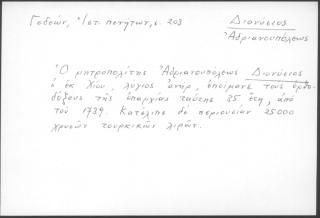 Γεδεών, Ἱστ. πενήτων, σ. 203
Διονύσιος
Ἀδριανουπόλεως
Ὁ μητροπολίτης Ἀδριανουπόλεως Διονύσιος
ὁ ἐκ Χίου, λόγιος ἀνήρ, ἐποίμανε τοὺς ὀρθο-
δόξους τῆς ἐπαρχίας ταύτης 35 ἔτη, ἀπὸ
τοῦ 1739. Κατέλιπε δὲ περιουσίαν 25000
χρυσῶν τουρκικῶν λιρῶν.